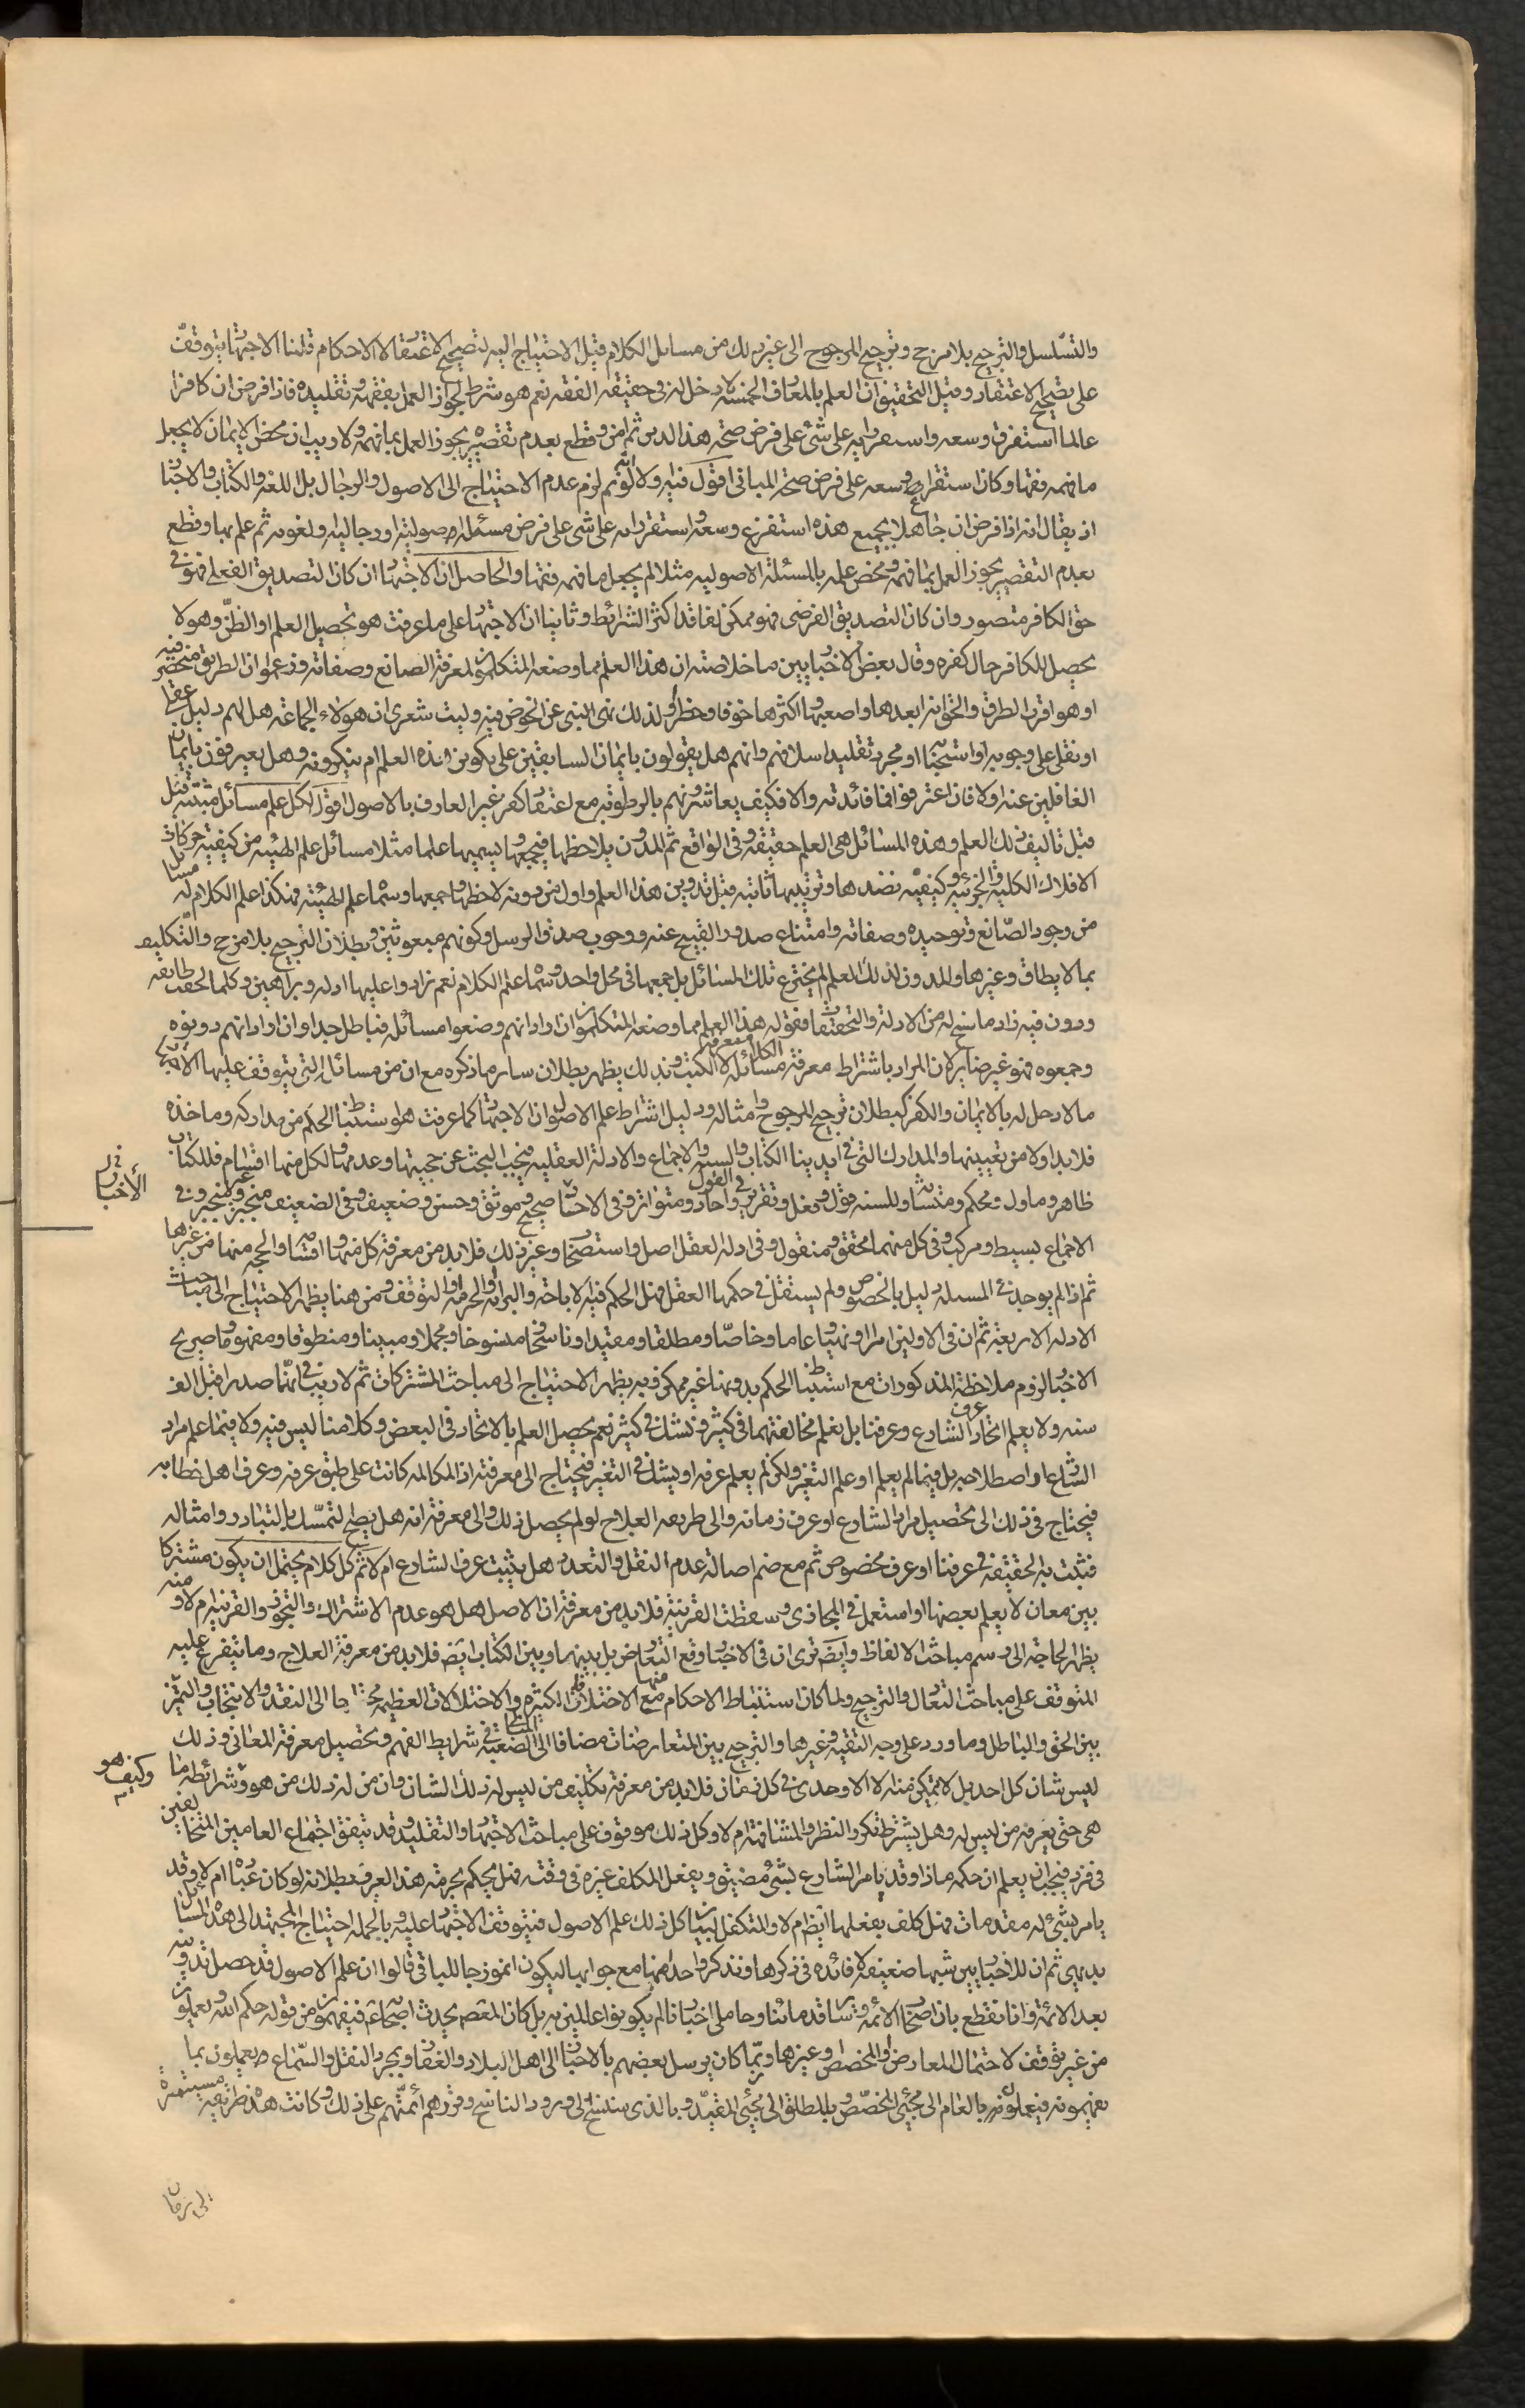 والتسلسل والترجيح بلا مرجح وترجيح المرجوح الى غير ذلك من مسائل الكلام قيل الاحتياج اليه لتصحيح الاعتقاد لا الاحكام قلنا الاجتهاد يتوقف
على تصحيح الاعتقاد وقيل التحقيق ان العلم بالمعارف الخمسة لا دخل له في حقيقة الفقه نعم هو شرط لجواز العمل بفقهه وتقليده فاذا فرض ان كافرا
عالما استفرق وسعه واستقر رايه على شئ على فرض صحة هذا الدين ثم امن وقطع بعدم تقصيره يجوز العمل بما فهمه ولا ريب ان محض الايمان لا يجعل
ما فهمه فقها وكان استفراغ وسعه على فرض صحة المباني اقول فيه اولا انه لو تم لزم عدم الاحتياج الى الاصول والرجال بل اللغة والكتاب والاخبار
اذ يقال انه اذا فرض ان جاهلا بجميع هذه استفرغ وسعه واستقر رايه على شئ على فرض مسئلة اصولية او رجالية او لغوية ثم علم بها وقطع
بعدم التقصير يجوز العمل بما فهمه ومحض علمه بالمسئلة الاصولية مثلا لم يجعل ما فهمه فقها والحاصل ان الاجتهاد ان كان التصديق الفعلي فهو في
حق الكافر متصور وان كان التصديق الفرضي فهو ممكن لفاقد اكثر الشرائط وثانيا ان الاجتهاد على ما عرفت هو تحصيل العلم او الظن وهو لا
يحصل للكافر حال كفره وقال بعض الاخباريين ما خلاصته ان هذا العلم مما وضعه المتكلمون لمعرفة الصانع وصفاته وزعموا ان الطريق منحصر فيه
او هو اقرب الطرق والحق انه ابعدها واصعبها واكثرها خوفا وخطرا ولذلك نهى النبي عن الخوض فيه وليت شعري ان هؤلاء الجماعة هل لهم دليل عقلي
او نقلي على وجوبه او استحبابه او مجرد تقليد اسلافهم وانهم هل يقولون بايمان السابقين على تكوين هذه العلم ام ينكرونه وهل يعترفون بايمان
الغافلين عنه اولا فان اعترفوا فما فائدته والا فكيف يعاشرونهم بالرطوبة مع اعتقاد كفر غير العارف بالاصول اقول لكل علم مسائل مثبتة قبل
قبل تاليف ذلك العلم وهذه المسائل هي العلم حقيقة وفي الواقع ثم المدون يلاحظها فيجمعها ويسميها علما مثلا مسائل علم الهيئة من كيفية حركات
الافلاك الكلية والجزئية وكيفية نضدها وترتيبها ثابتة قبل تدوين هذا العلم واول من دونه لاحظها وجمعها وسماه علم الهيئة فهكذا علم الكلام له مسائل
من وجود الصانع وتوحيده وصفاته وامتناع صدور القبيح عنه ووجوب صدق الرسل وكونهم مبعوثين وبطلان الترجيح بلا مرجح والتكليف
بما لا يطاق وغيرها والمدون لذلك العلم لم يخترع تلك المسائل بل جمعها في محل واحد وسماه علم الكلام نعم زادوا عليها ادلة وبراهين وكلما لحقت طايفة
ودون فيه زاد ما سنح له من الادلة والتحقيقات فقوله هذا العلم مما وضعه المتكلمون ان اراد انهم وضعوا مسائله فباطل جدا وان اراد انهم دونوه
وجمعوه فهو غير ضاير لان المراد باشتراط معرفة الكلام معرفة مسائله لا الكتب وبذلك يظهر بطلان ساير ما ذكره مع ان من مسائل التي يتوقف عليها الاجتهاد
ما لا دخل له بالايمان والكفر كبطلان ترجيح المرجوح وامثاله ودليل اشتراط علم الاصول ان الاجتهاد كما عرفت هو استنباط الحكم من مداركه وماخذه
فلابد اولا من تعيينها والمدارك التي في ايدينا الكتاب والسنة والاجماع والادلة العقلية فيجب البحث عن حجيتها وعدمها ولكل منها اقسام فللكتاب
ظاهر وماول ومحكم ومتشابه وللسنة قول وفعل وتقرير وفي القول واحاد ومتواتر وفي الاحاد صحيح وموثق وحسن وضعيف وفي الضعيف منجبر وغير منجبر وفي
في الأخبار
الاجماع بسيط ومركب وفي كل منهما محقق ومنقول وفي ادلة العقل اصل واستصحاب وغير ذلك فلابد من معرفة كل منها واقسامه والحجة منها من غيرها
ثم اذا لم يوجد في المسئلة دليل بالخصوص ولم يستقل في حكمها العقل فهل الحكم فيه الاباحة والبرائة او الحرمة او التوقف ومن هنا يظهر الاحتياج الى مباحث
الادلة الاربعة ثم ان في الاولين امرا ونهيا وعاما وخاصا ومطلقا ومقيدا وناسخا ومنسوخا ومجملا ومبينا ومنطوقا ومفهوما وصريح
الاخبار لزوم ملاحظة المذكورات مع استنباط الحكم بدونها غير ممكن وبه يظهر الاحتياج الى مباحث المشتركات ثم لا ريب في انها صدرا قبل الف
سنة ولا يعلم اتحاد عرف الشارع وعرفنا بل نعلم مخالفتهما في كثير ونشك في كثير نعم يحصل العلم بالاتحاد في البعض وكلامنا ليس فيه ولا فيما علم مراد
الشارع او اصطلاحه بل فيما لم يعلم او علم التغير ولكن لم يعلم عرفه او يشك في التغير فيحتاج الى معرفته اذ المكالمة كانت على طبق عرفه وعرف اهل خطابه
فيحتاج في ذلك الى تحصيل مراد الشارع او عرف زمانه والى طريقة العلاج لو لم يحصل ذلك والى معرفة انه هل يصح التمسك بالتبادر وامثاله
فتثبت به الحقيقة في عرفنا او عرف مخصوص ثم مع ضم اصالة عدم النقل والتعدد هل يثبت عرف الشارع ام لا ثم كل كلام يحتمل ان يكون مشتركا
بين معان لا يعلم بعضها او استعمل في المجازي وسقطت القرينة فلابد من معرفة ان الاصل هل هو عدم الاشتراك والتجوز والقرينة ام لا ومنه
يظهر الحاجة الى رسم مباحث الالفاظ وايضا ترى ان في الاخبار وقع التعارض بل بينهما وبين الكتاب ايضا فلابد من معرفة العلاج وما يتفرع عليه
المتوقف على مباحث التعادل والترجيح ولما كان استنباط الاحكام منها مع الاختلافات الكثيرة والاختلالات العظيمة محتاجا الى النقد والانتخاب والتميز
بين الحق والباطل وما ورد على وجه التقية وغيرها والترجيح بين المتعارضات مضافا الى المشاق الصعبة في شرايط الفهم وتحصيل معرفة المعاني وذلك
ليس شان كل احد بل لا يتمكن منه الا الاوحدي في كل زمان فلابد من معرفة تكليف من ليس له ذلك الشان وان من له ذلك من هو وشرائطه ما
وكيف هو
هي حتى يعرفه من ليس له وهل يشترط تكرر النظر والمشافهة ام لا وكل ذلك موقوف على مباحث الاجتهاد والتقليد وقد يتفق اجتماع العامين المتخالفين
في فرد فيجب ان يعلم ان حكمه ماذا وقد يامر الشارع بشئ مضيق ويفعل المكلف غيره في وقته فهل يحكم بحرمة هذا الغير وبطلانه لو كان عبادة ام لا وقد
يامر بشئ له مقدمات فهل كلف بفعلها ايضا ام لا والمتكفل لبيان كل ذلك علم الاصول فيتوقف الاجتهاد عليه وبالجملة احتياج المجتهد الى هذه المسائل
بديهي ثم ان للاخباريين شبها ضعيفة لا فائدة في ذكرها ونذكر واحدا منها مع جوابها ليكون انموذجا للباقي قالوا ان علم الاصول قد حصل تدوينه
بعد الائمة وانا نقطع بان اصحاب الائمة وساير قدمائنا وحاملي اخبارنا لم يكونوا عالمين به بل كان المعصوم يحدث اصحابه فيفهمون من قوله حكم الله ويعملون
من غير توقف لاحتمال المعارض او المخصص وغيرها وربما كان يرسل بعضهم بالاخبار الى اهل البلاد والقفار وبمجرد النقل والسماع يعملون بما
يفهمونه فيعملون بالعام الى مجيئ المخصص وبالمطلق الى مجيئ المقيد وبالذي سينسخ الى ورود الناسخ وقررهم ائمتهم على ذلك وكانت هذه طريقة مستمرة
الى زمان